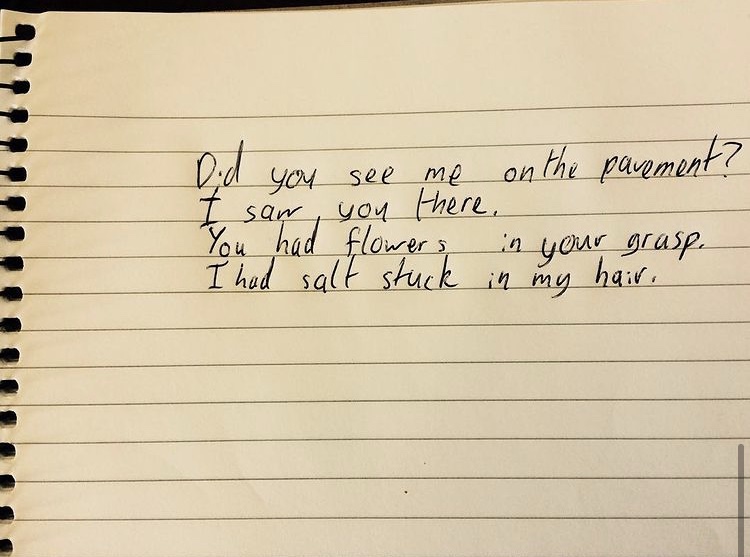 Did you see me on the pavement?
I saw you there.
You had flowers in your grasp.
I had salt stuck in my hair.